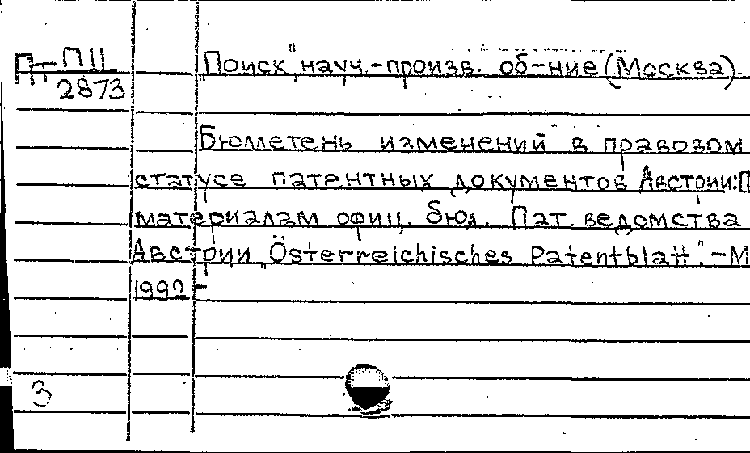 Пт П11
2873
"Поиск" науч.-произв. об-ние (Москва).
Бюллетень изменений в правовом
статусе патентных документов Австрии: П
материалам офиц. бюл. Пат. ведомства
Австрии "Österreichisches Patentblatt". - М
1992 -
3